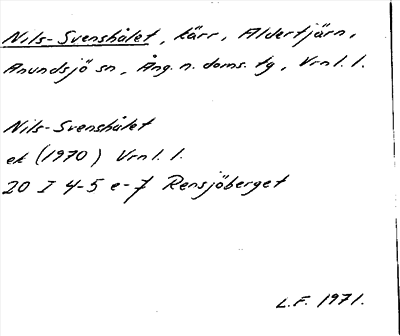 Nils-Svenshålet, kärr, Aldertjärn,
Anundsjö sn, Ång. n. doms. tg, Vrnl. l.
Nils-Svenshålet
ek (1970) Vrnl. l.
20 I 4-5 e-7 Rensjöberget
L.F. 1971.